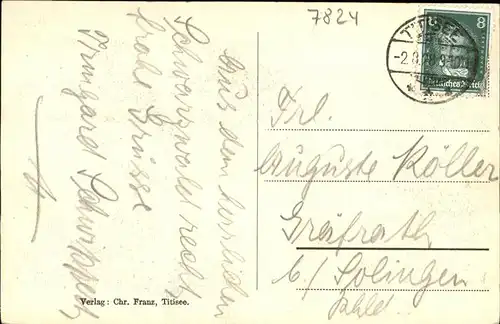 7824
Aus dem herrlichen
Schwarzwald recht
frohe Grüsse
Irmgard
Verlag: Chr. Franz, Titisee.
8
Deutsches Reich
Frl.
Auguste Köller
Gräfrath
b/ Solingen